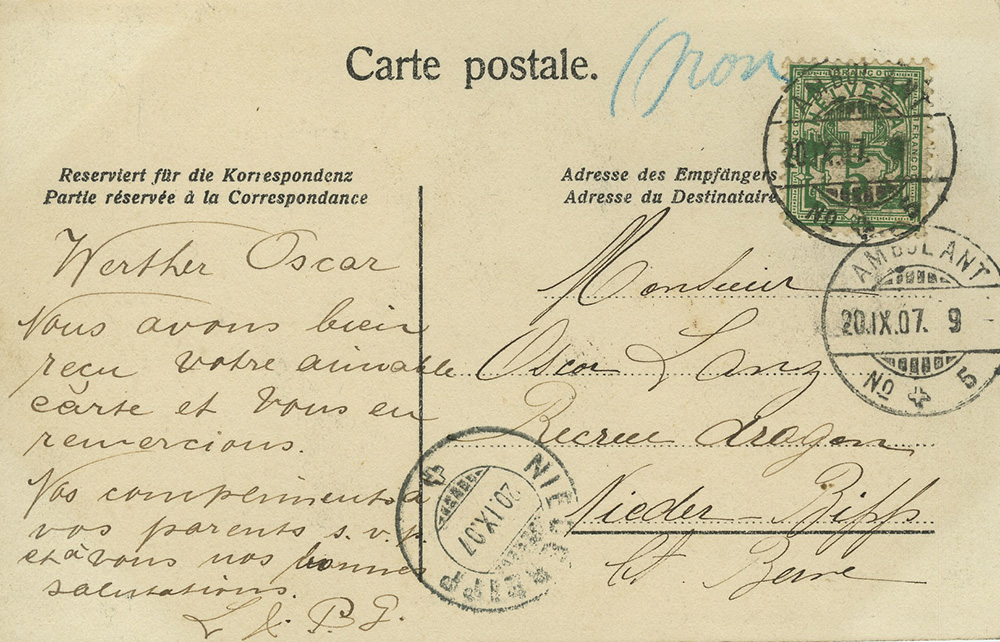 Carte postale.
FRANCO HELVETIA FRANCO
20.IX.07. 9
No 5
Reserviert für die Korrespondenz
Partie réservée à la Correspondance
Adresse des Empfängers
Adresse du Destinataire
AMBULANT
20.IX.07. 9
No 5
Werther Oscar
Nous avons bien
reçu votre aimable
carte et vous en
remercions.
Nos compliments à
vos parents s.v.p.
et à vous nos bonnes
salutations.
Monsieur
Oscar Lanz
Recrue dragon
Nieder-Bipp
Ct. Berne
20.IX.07